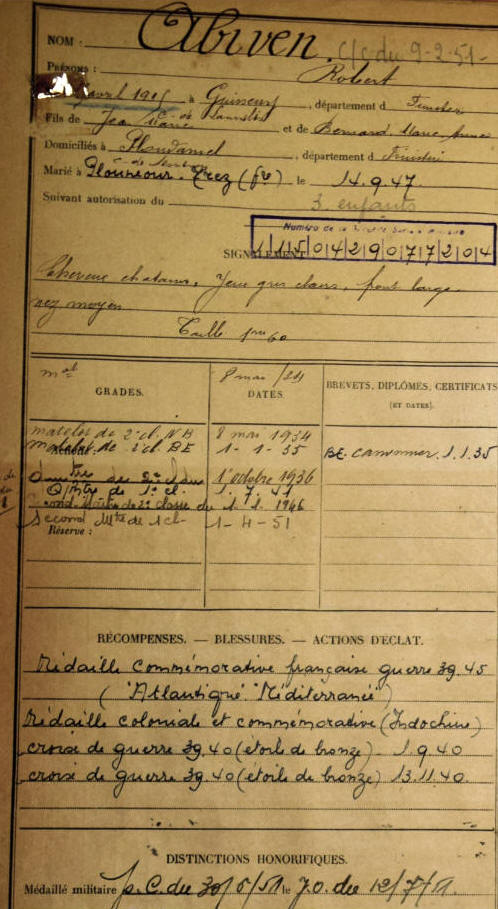 NOM : Abiven. C/C du 9-2-51-
PRÉNOMS : Robert
avril 1915 à Guisseny, département d Finistère
Fils de Jean Marie et de Bernard Marie Anne
Domiciliés à Ploudaniel, département d Finistère
Marié à Plounéour-Trez (fre) le 14.9.47
Suivant autorisation du 3 enfants
Numéro de la
SIGNALEMENT
1 115 04 29 077 204
Cheveux chatains, Yeux gris clairs, front large
nez moyen
Taille 1m 60
mal 8 mai /34
GRADES. DATES BREVETS, DIPLÔMES, CERTIFICATS
(ET DATES).
matelot de 2e cl. NB 8 mai 1934
matelot de 2e cl. BE 1-1-35 BE. canonnier. 1.1.35
1er octobre 1936
Q/Mtre de 1e cl. 1.7.41
Second Maitre de 2e classe du 1.1.1946
Second Mtre de 1 cl- 1-4-51
Réserve :
RÉCOMPENSES. — BLESSURES. — ACTIONS D'ÉCLAT.
Médaille commémorative française guerre 39.45
( "Atlantique" "Méditerranée")
Médaille coloniale et commémorative (Indochine)
croix de guerre 39.40 (étoile de bronze) 1.9.40
croix de guerre 39.40 (étoile de bronze) 13.11.40.
DISTINCTIONS HONORIFIQUES.
Médaillé militaire p.C. du 30/5/51 le J.O. du 12/7/51.